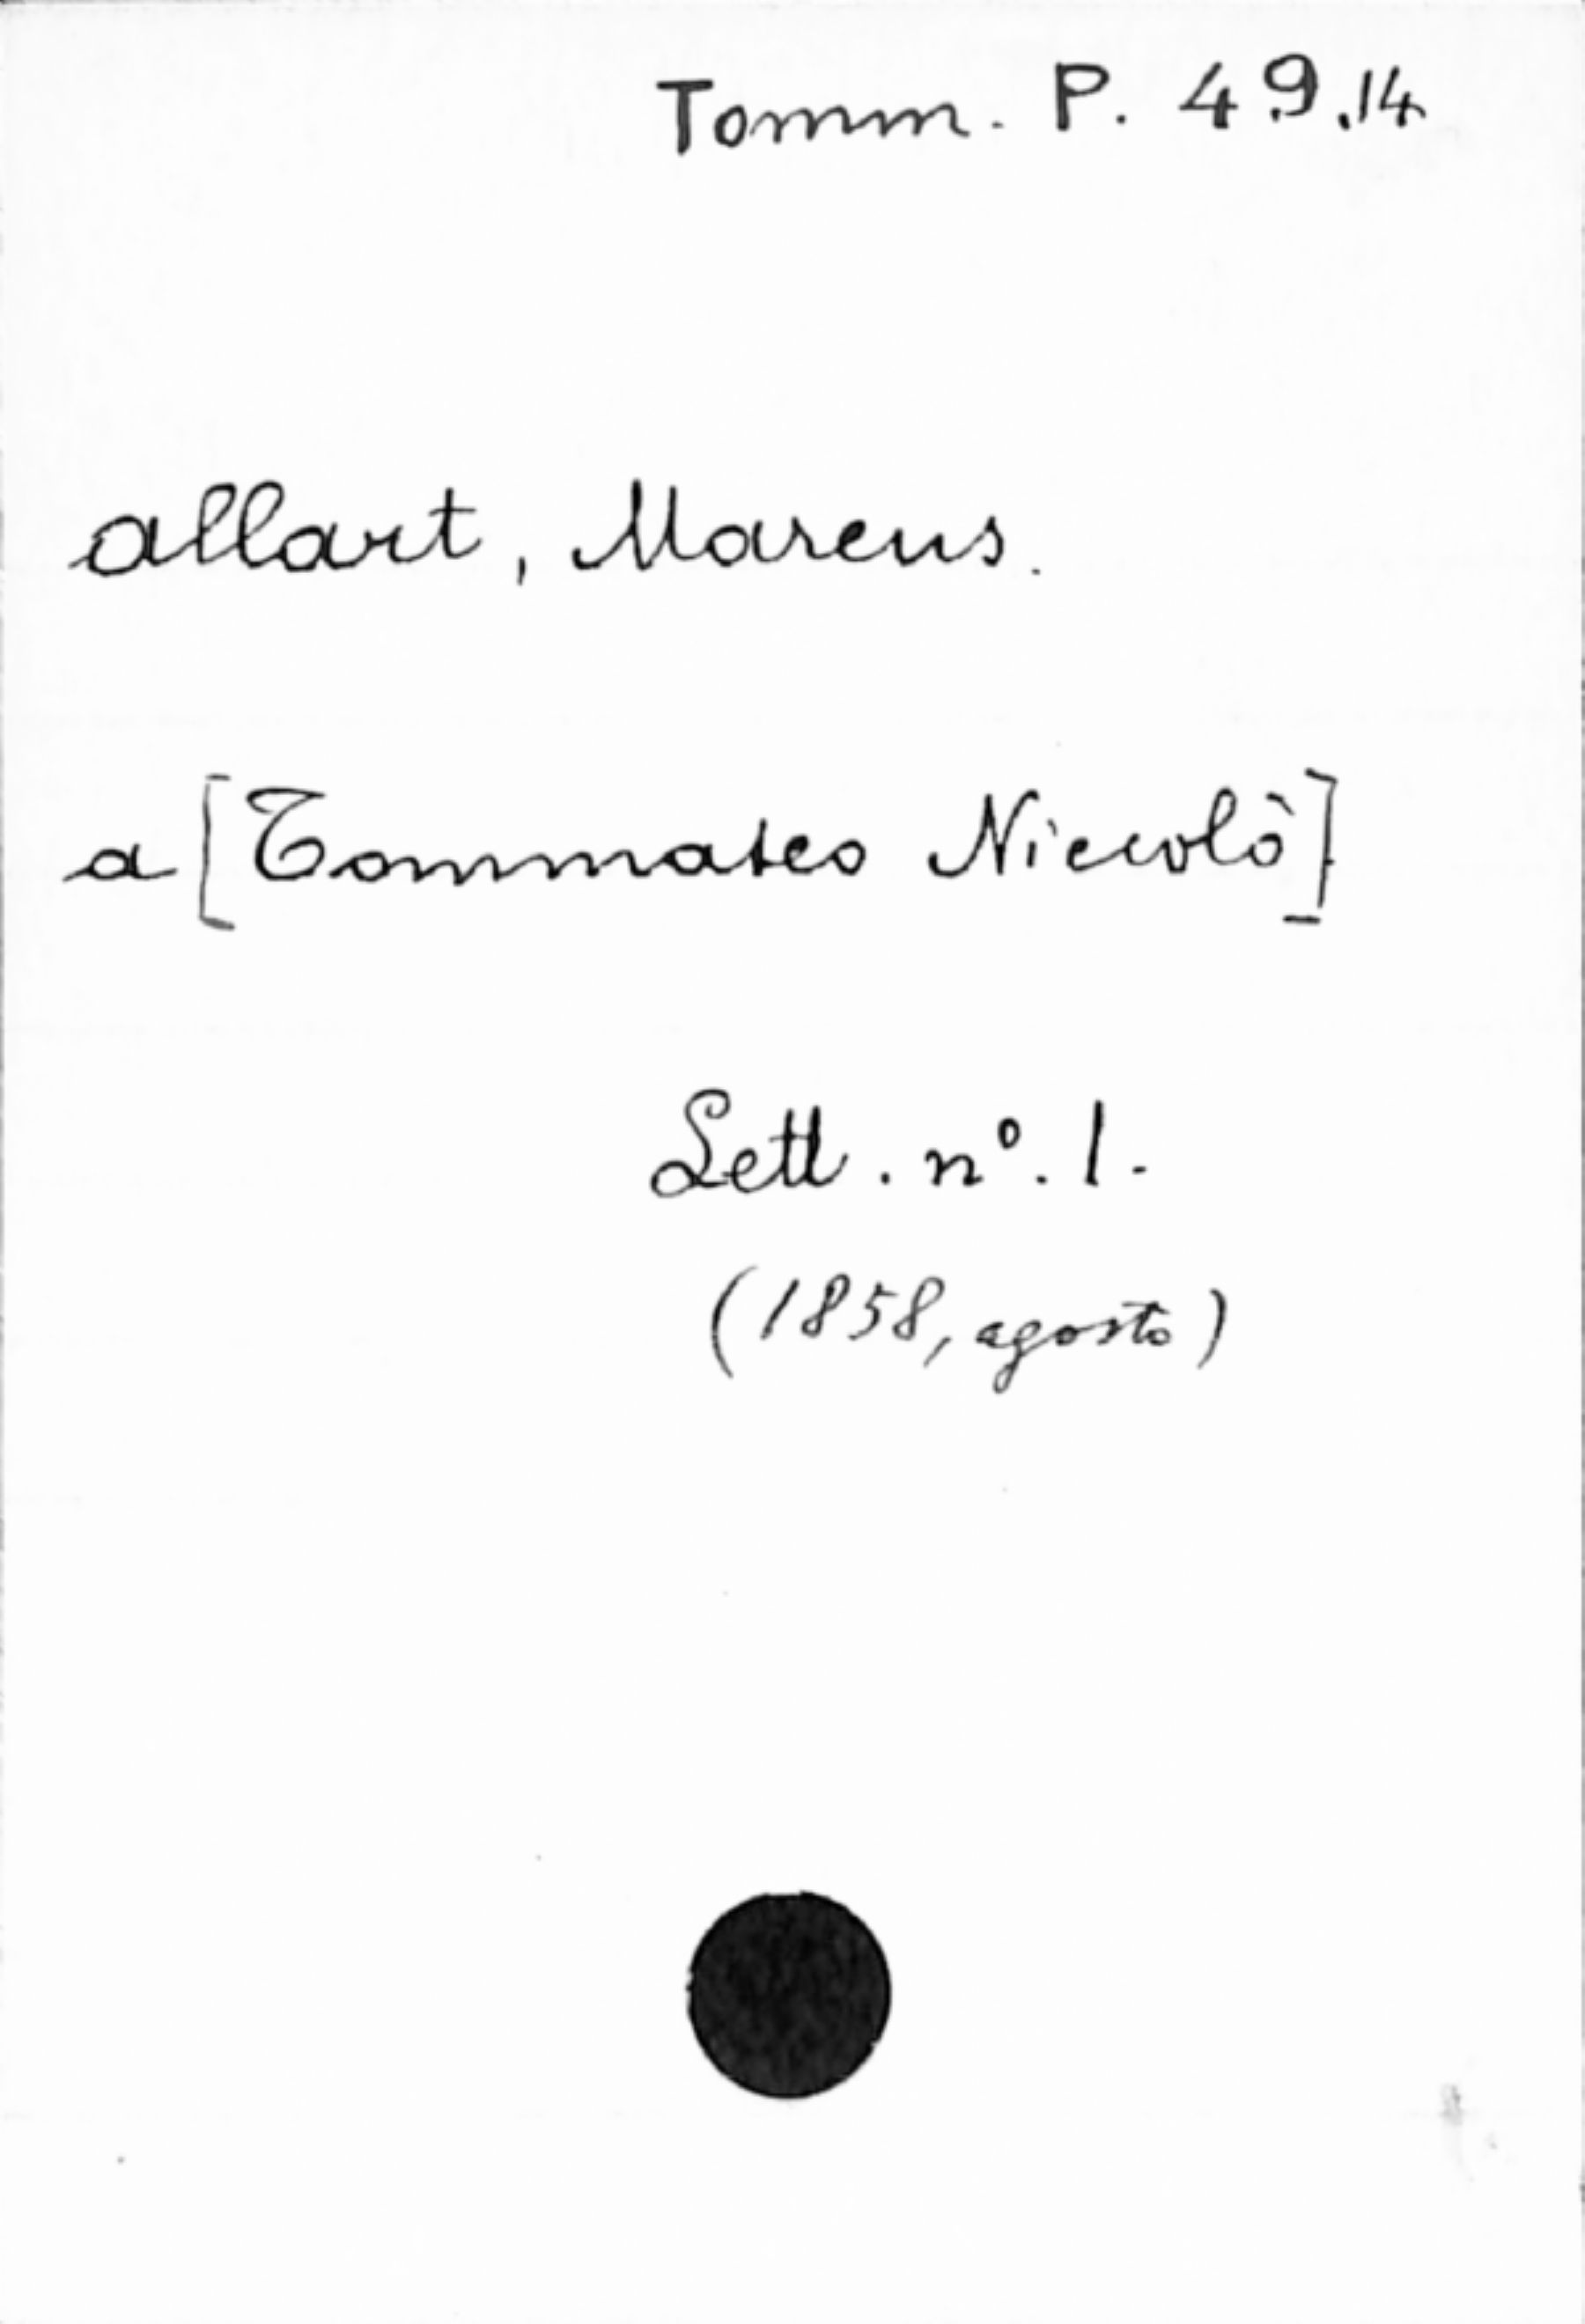 Tomm. P. 49.14
Allart, Marcus.
a [Tommaseo Niccolò]
Lett. n°. 1.
(1858, agosto)